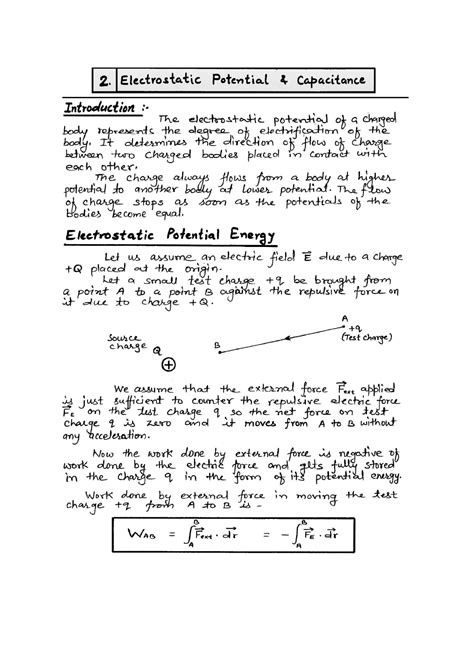 2. Electrostatic Potential & Capacitance
Introduction :-
The electrostatic potential of a charged
body represents the degree of electrification of the
body. It determines the direction of flow of charge
between two charged bodies placed in contact with
each other.
The charge always flows from a body at higher
potential to another body at lower potential. The flow
of charge stops as soon as the potentials of the
bodies become equal.
Electrostatic Potential Energy
Let us assume an electric field E⃗ due to a charge
+Q placed at the origin.
Let a small test charge +q be brought from
a point A to a point B against the repulsive force on
it due to charge +Q.
A
+q
(Test charge)
Source
charge Q
B
⊕
We assume that the external force F⃗ext applied
is just sufficient to counter the repulsive electric force
F⃗E on the test charge q so the net force on test
charge q is zero and it moves from A to B without
any acceleration.
Now the work done by external force is negative of
work done by the electric force and gets fully stored
in the charge q in the form of its potential energy.
Work done by external force in moving the test
charge +q from A to B is -
W_AB = ∫_A^B F⃗ext · dr⃗ = - ∫_A^B F⃗E · dr⃗